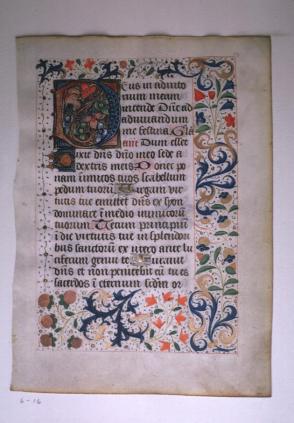 Deus in adiuto
rium meum
intende Dñe ad
adiuuandum
me festina Gla
ane Dum esset
Dixit dñs dño meo sede a
dextris meis Donec po
nam inimicos tuos scabellum
pedum tuorū Virgam vir
tutis tue emittet dñs ex syon
dominare ī medio inimicorū
tuorum Tecum principiū
ī die virtutis tue ī splendori
bus sanctorū ex utero ante lu
ciferum genui te Iurauit
dñs et non penitebit eū tu es
sacerdos ī eternum scdm or
6-16